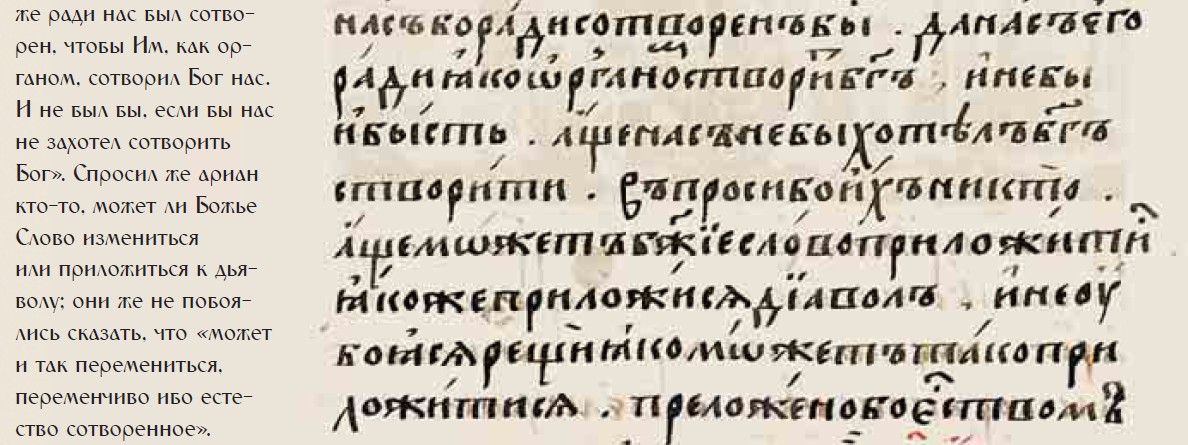 же ради нас был сотво-
рен, чтобы Им, как ор-
ганом, сотворил Бог нас.
И не был бы, если бы нас
не захотел сотворить
Бог». Спросил же ариан
кто-то, может ли Божье
Слово измениться
или приложиться к дья-
волу; они же не побоя-
лись сказать, что «может
и так перемениться,
переменчиво ибо есте-
ство сотворенное».
насъ боради сотворенъ бы . да насъ его
ради ꙗко ѡрганом створи бг҃ъ , и не бы
и бысть . аще насъ не бы хотѣлъ бг҃ъ
створити . въпроси бо ихъ никто .
аще мѡжетъ бж҃їе слово приложити
ꙗкоже приложисѧ дїаволъ . и не оу
боꙗсѧ рещи ꙗко мѡжетъ тако при
ложитисѧ . преложено бо єствомъ